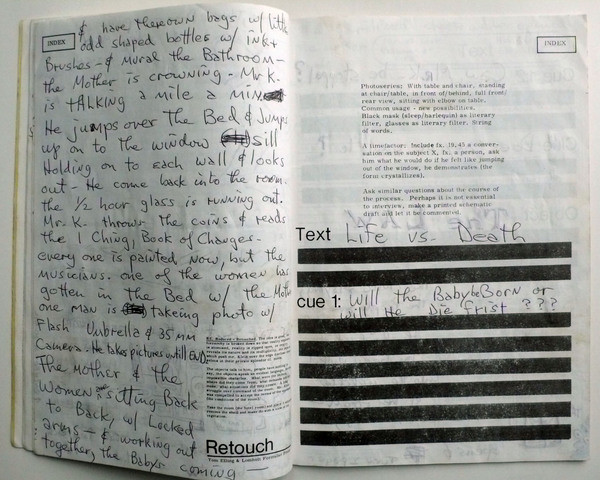 INDEX
& have thereown bags w/ little
odd shaped bottles w/ ink+
Brushes - & Mural the Bathroom -
the Mother is crowning - Mr. K.
is tALKing a mile a min
He jumps over the Bed & Jumps
up on to the window sill
Holding on to each wall & looks
out - He come back into the room.
the 1/2 hour glass is running out.
Mr. K. throws the coins & reads
the I Ching, Book of Changes -
every one is painted Now, but the
musicians. one of the women has
gotten in the Bed w/ the Mother
one man is takeing photo w/
Flash Unbrella & 35 mm
Camera - He takes pictures until END.
The Mother & the
Women sitting Back
to Back, w/ Locked
arms - & working out
together, the Babys coming
Retouch
INDEX
Photoseries: With table and chair, standing
at chair/table, in front of/behind, full front/
rear view, sitting with elbow on table.
Common usage - new possibilities.
Black mask (sleep/harlequin) as literary
filter, glasses as literary filter. String
of words.
A timefactor: Include fx. 19,45 a conver-
sation on the subject X, fx. a person, ask
him what he would do if he felt like jumping
out of the window, he demonstrates (the
form crystallizes).
Ask similar questions about the course of
the process. Perhaps it is not essential
to interview, make a printed schematic
draft and let it be commented.
Text Life vs. Death
cue 1: Will the Baby be Born or
will He Die frist ???